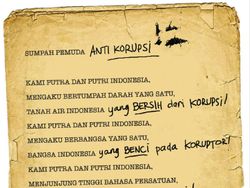 SUMPAH PEMUDA ANTI KORUPSI
KAMI PUTRA DAN PUTRI INDONESIA,
MENGAKU BERTUMPAH DARAH YANG SATU,
TANAH AIR INDONESIA yang BERSIH dari KORUPSI
KAMI PUTRA DAN PUTRI INDONESIA,
MENGAKU BERBANGSA YANG SATU,
BANGSA INDONESIA yang BENCI pada KORUPTOR!
KAMI PUTRA DAN PUTRI INDONESIA,
MENJUNJUNG TINGGI BAHASA PERSATUAN,